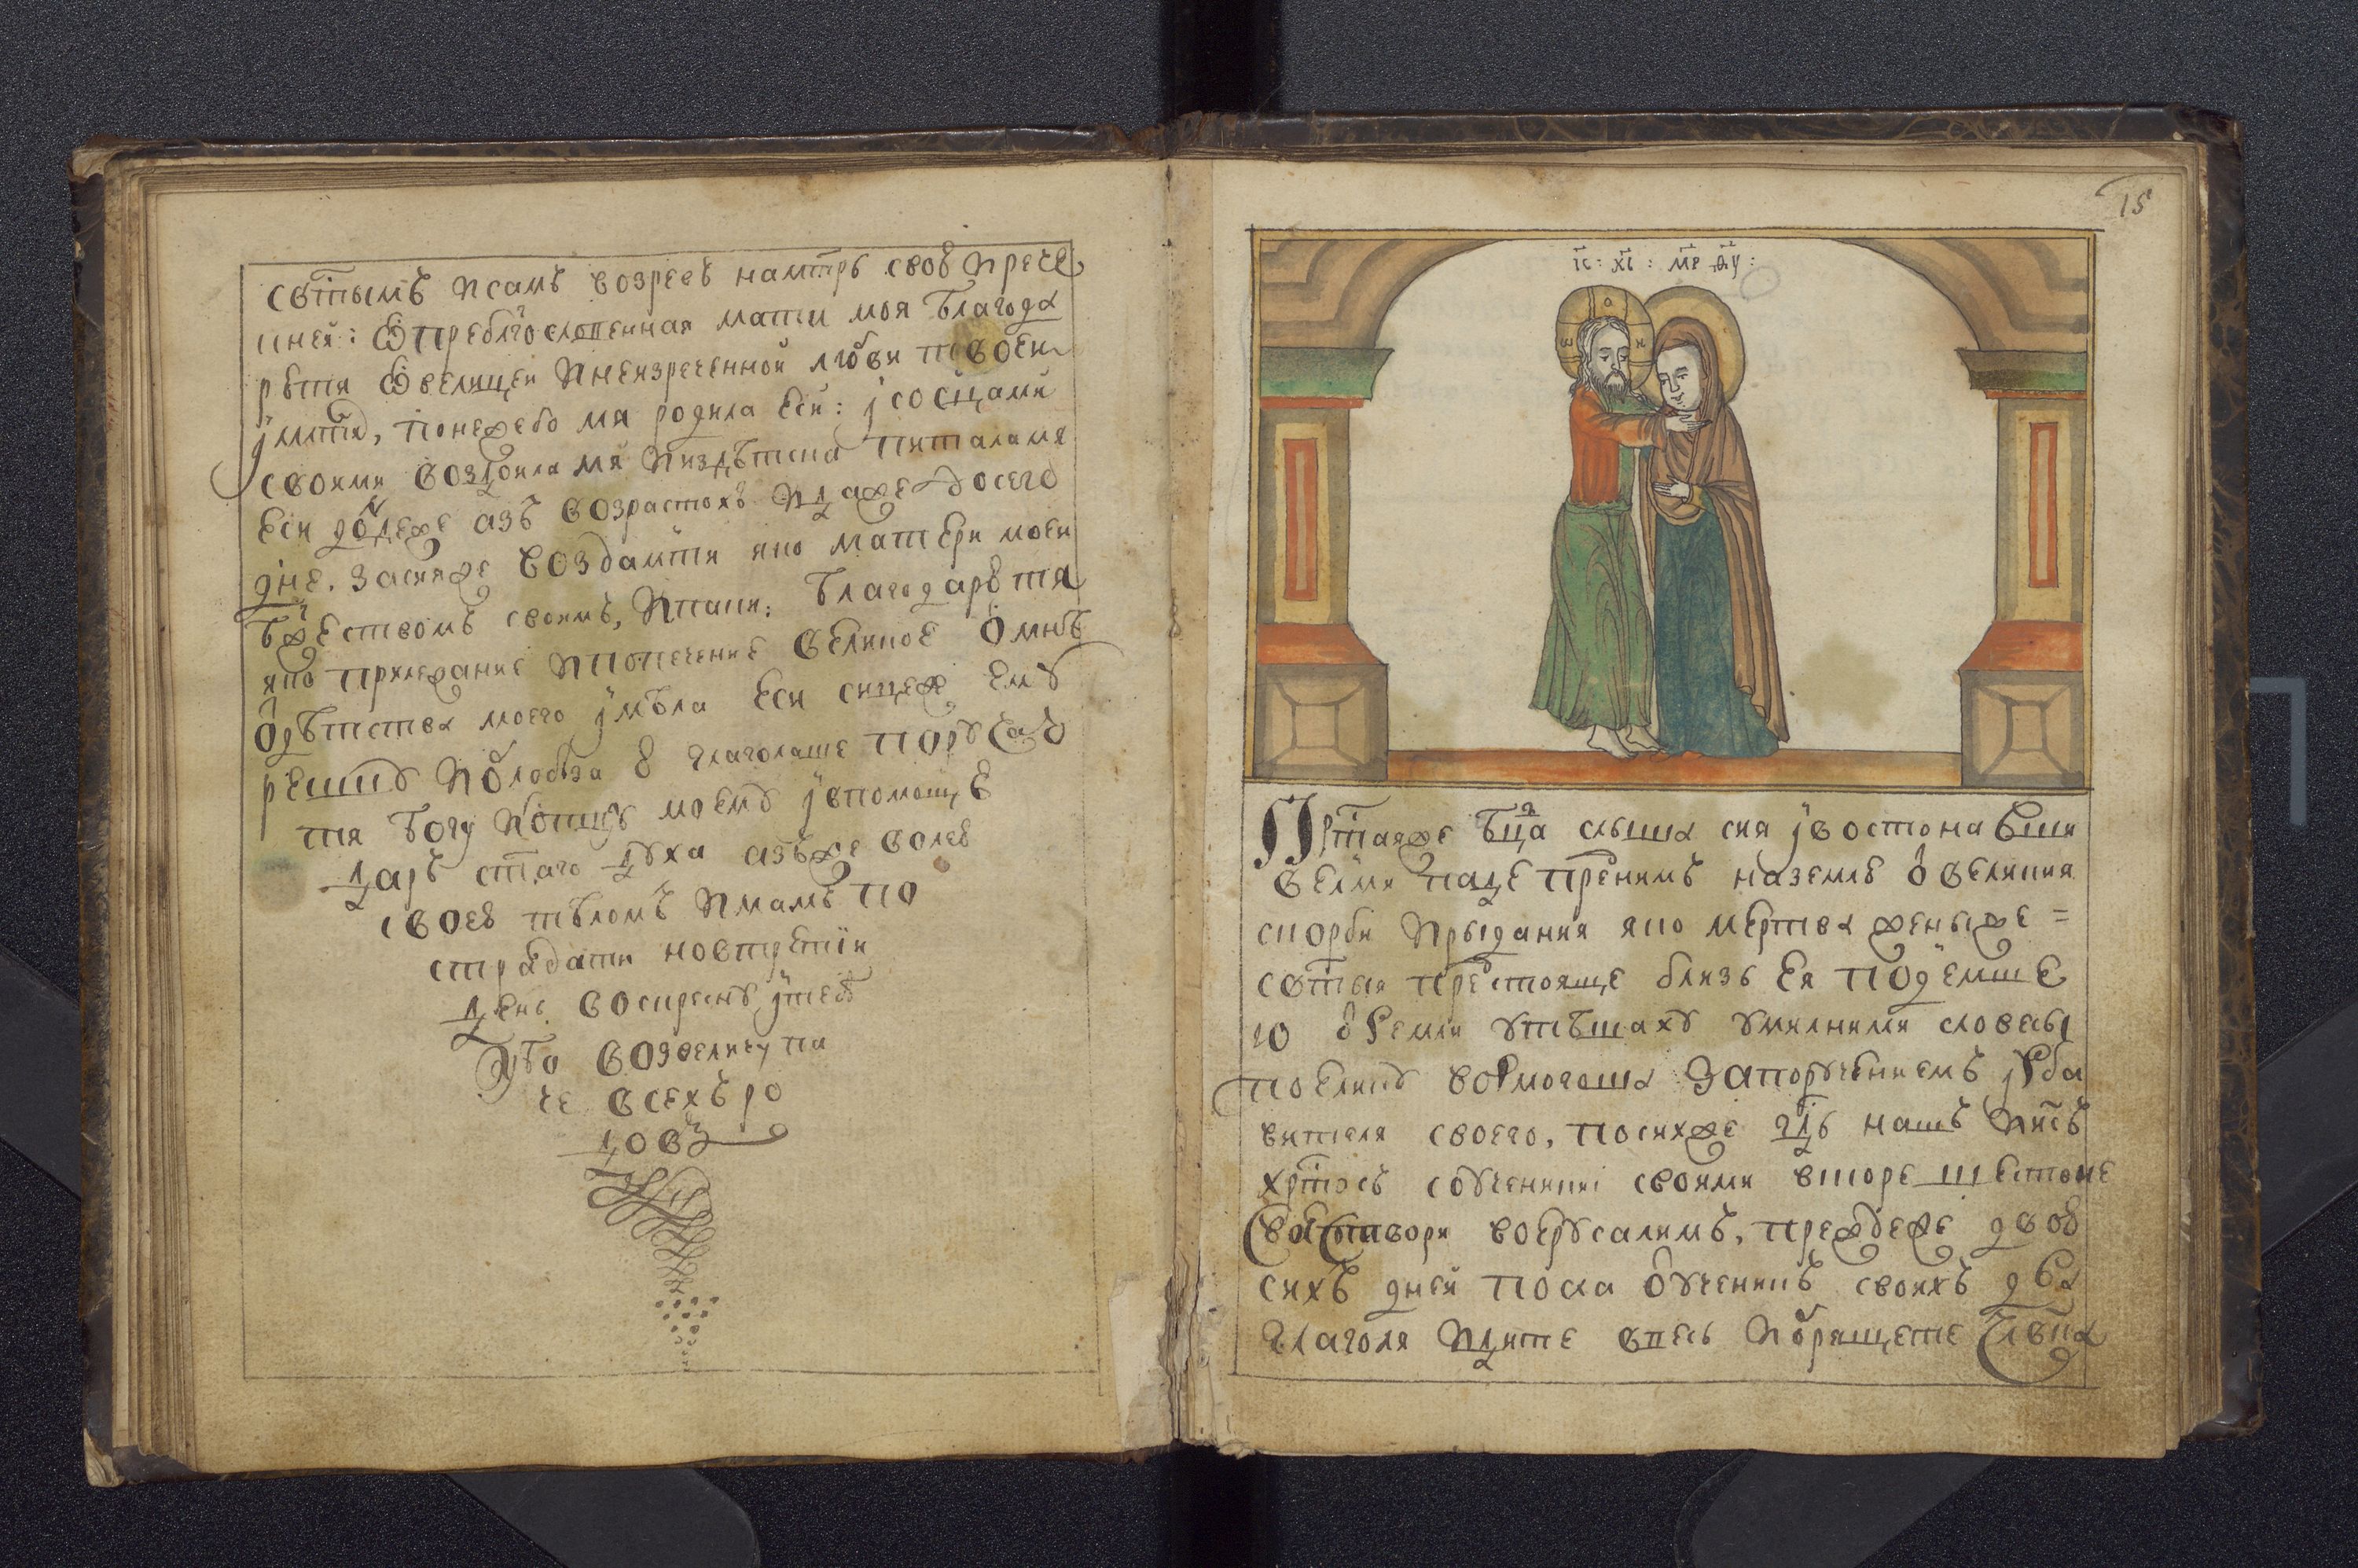 свтымъ исамъ возревъ наматрь своѹ прече
иней: ѿпреблгословенная мати моя благода
рѹти ѿвелицеи инеизреченной любви твоеи
понежебо мя родила еси: ј сосцами
своими воздоила мя издѣтска питаламя
еси дондеже азъ возрастохъ идаже досего
дне. засияже воздамти яко матери моеи
бжеством своимъ, ипаки: благодарѹ тя
яко прилежание ипопечение великое ѡмнѣ
ѿдѣтства моего јмѣла еси сицеже емѹ
рекшѹ иоблобыза ѹ глаголаше порѹчаю
тя богу иотцѹ моемѹ јвпомощь
царь стаго дѹха азъже волею
своею тѣломъ имамъ по
страдати новтретіи
день воскреснѹ јтебѣ
ѹбо возвеличу па
че всехъ ро
довъ
15
іс: хъ: мр ѳу:
Пртаяже бца слыша сия јвостона вши
велми паде преникъ наземлѣ ѿ великия
скорби ирыдания яко мертва женыже
свтыя престояще близь ея подемше
ю ѿземли ѹтѣшахѹ ѹмилними словесы
поеликѹ возмогоша запорѹчениемъ јзба
вителя своего, посихже гдь нашъ иисъ
христосъ соѹченики своими вторе шествие
сотвори воерѹсалимъ, преждеже двою
сихъ дней посла ѿѹченикъ своихъ два
глаголя идите ввесь иобрящете